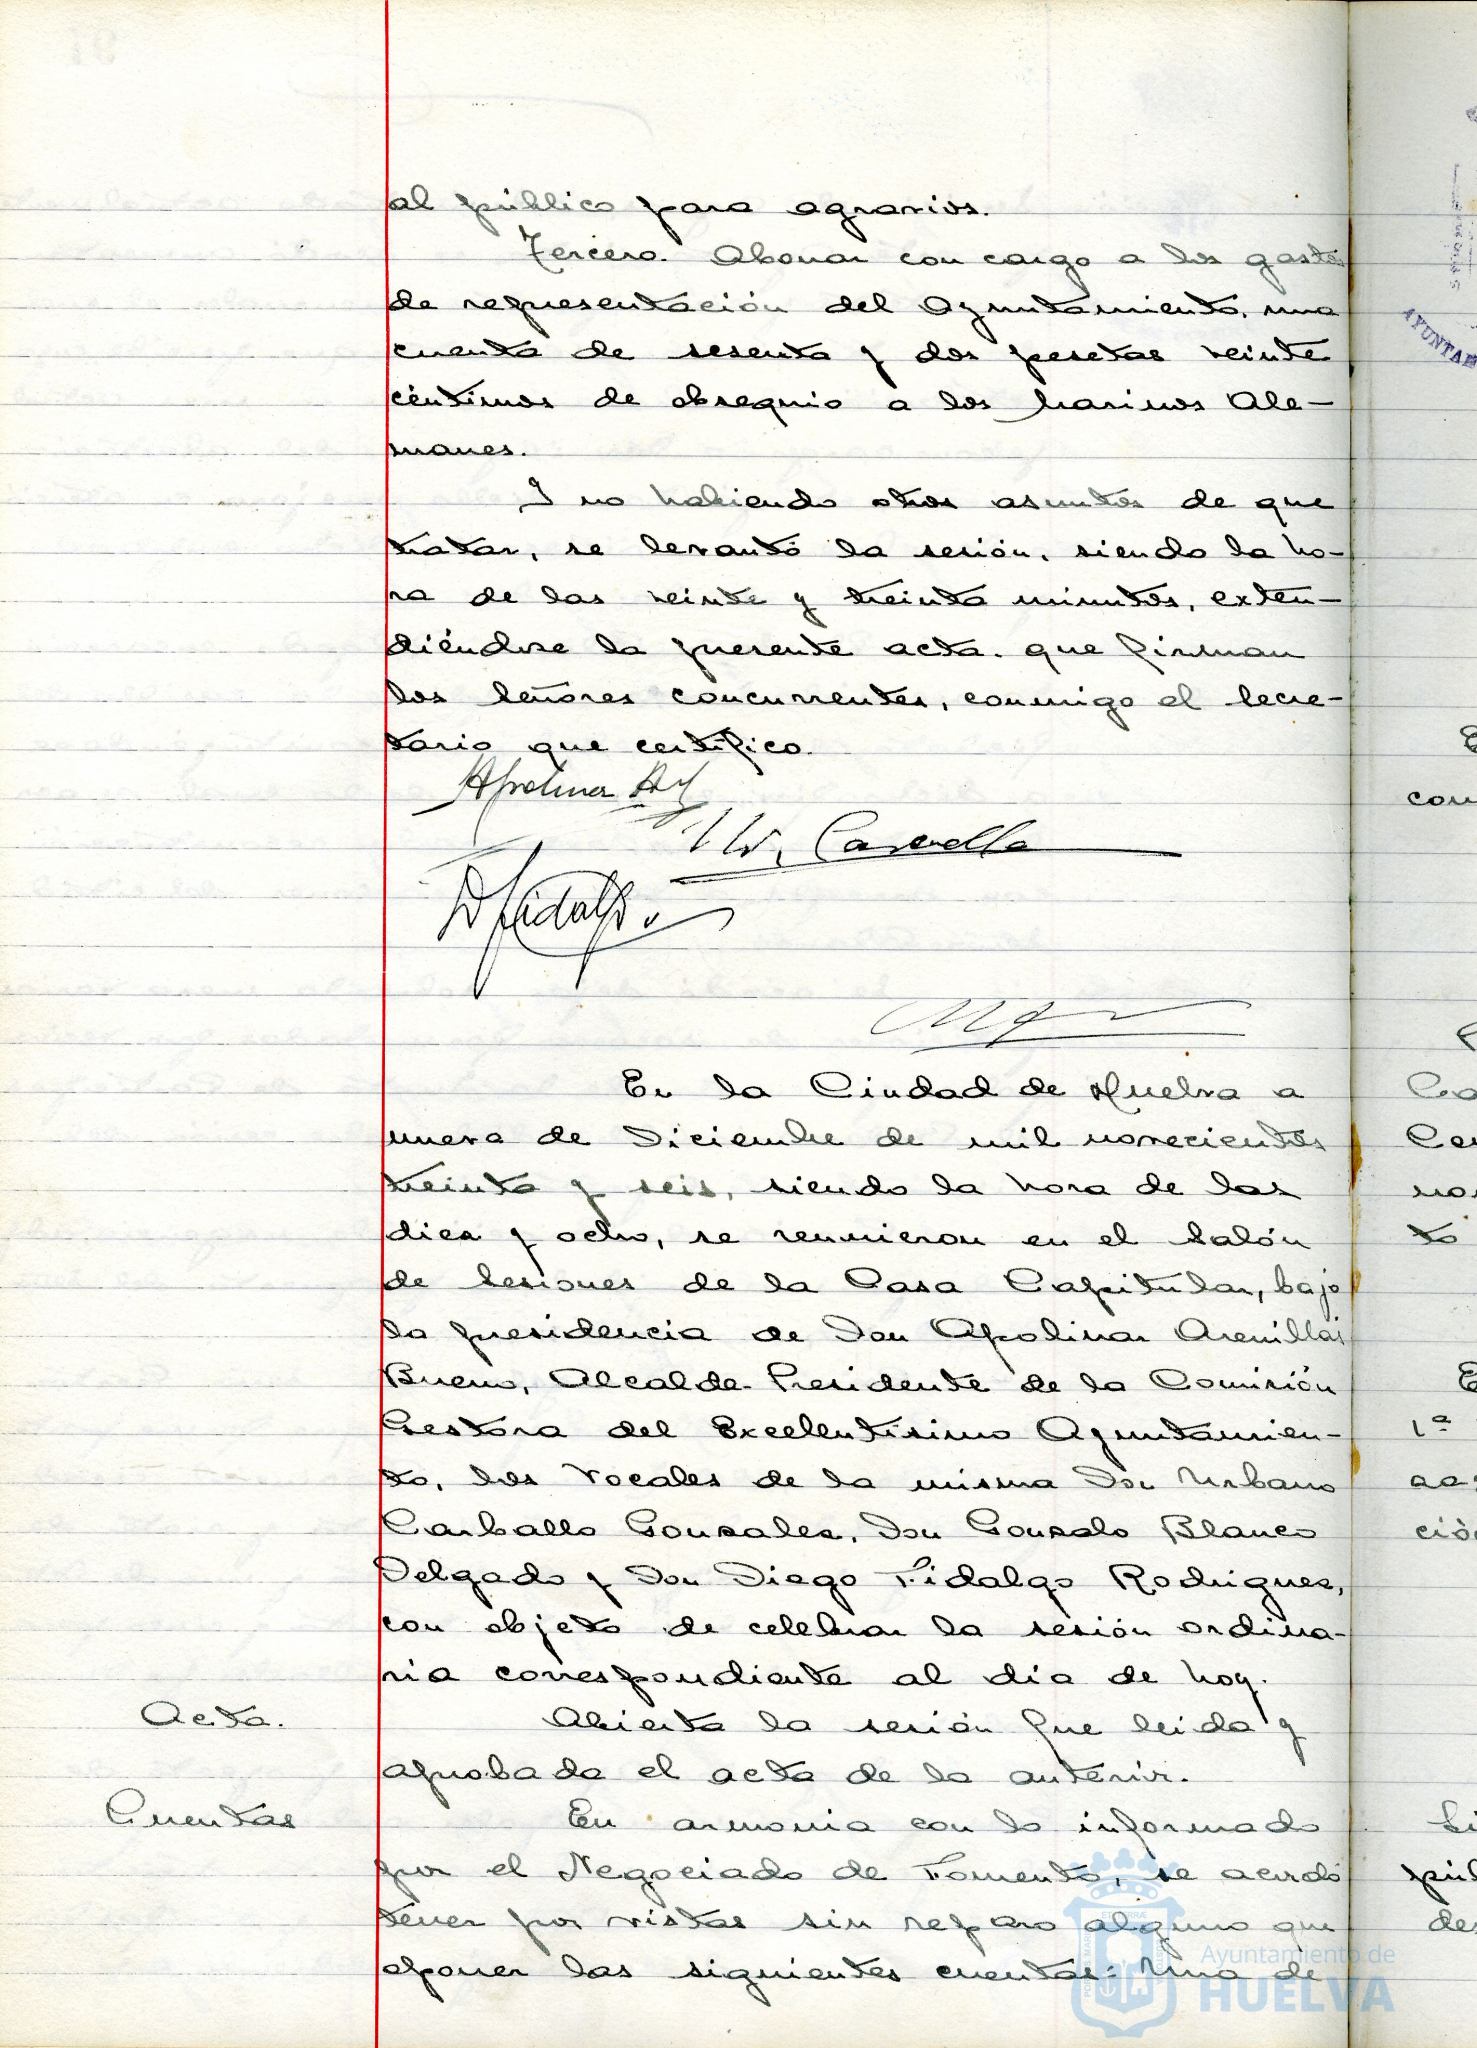 al público para agravios.
Tercero. Abonar con cargo a los gastos
de representación del Ayuntamiento, una
cuenta de sesenta y dos pesetas veinte
céntimos de obsequio a los Marinos Ale-
manes.
Y no habiendo otros asuntos de que
tratar, se levantó la sesión, siendo la ho-
ra de las veinte y treinta minutos, exten-
diéndose la presente acta. que firman
los Señores concurrentes, conmigo el Secre-
tario que certifico.
D Fidalgo
En la Ciudad de Huelva a
nueve de Diciembre de mil novecientos
treinta y seis, siendo la hora de las
diez y ocho, se reunieron en el Salón
de Sesiones de la Casa Capitular, bajo
la presidencia de Don Apolinar Arenillas
Bueno, Alcalde-Presidente de la Comisión
Gestora del Excelentísimo Ayuntamien-
to, los Vocales de la misma Don Urbano
Carballo Gonzalez, Don Gonzalo Blanco
Delgado y Don Diego Fidalgo Rodriguez,
con objeto de celebrar la sesión ordina-
ria correspondiente al día de hoy.
Acta.
Abierta la sesión fue leida y
aprobada el acta de la anterior.
Cuentas
En armonia con lo informado
por el Negociado de Fomento, se acordó
tener por vistas sin reparo alguno que
oponer las siguientes cuentas: Una de
Ayuntamiento de
HUELVA
AYUNTAM
con
1ª
ción